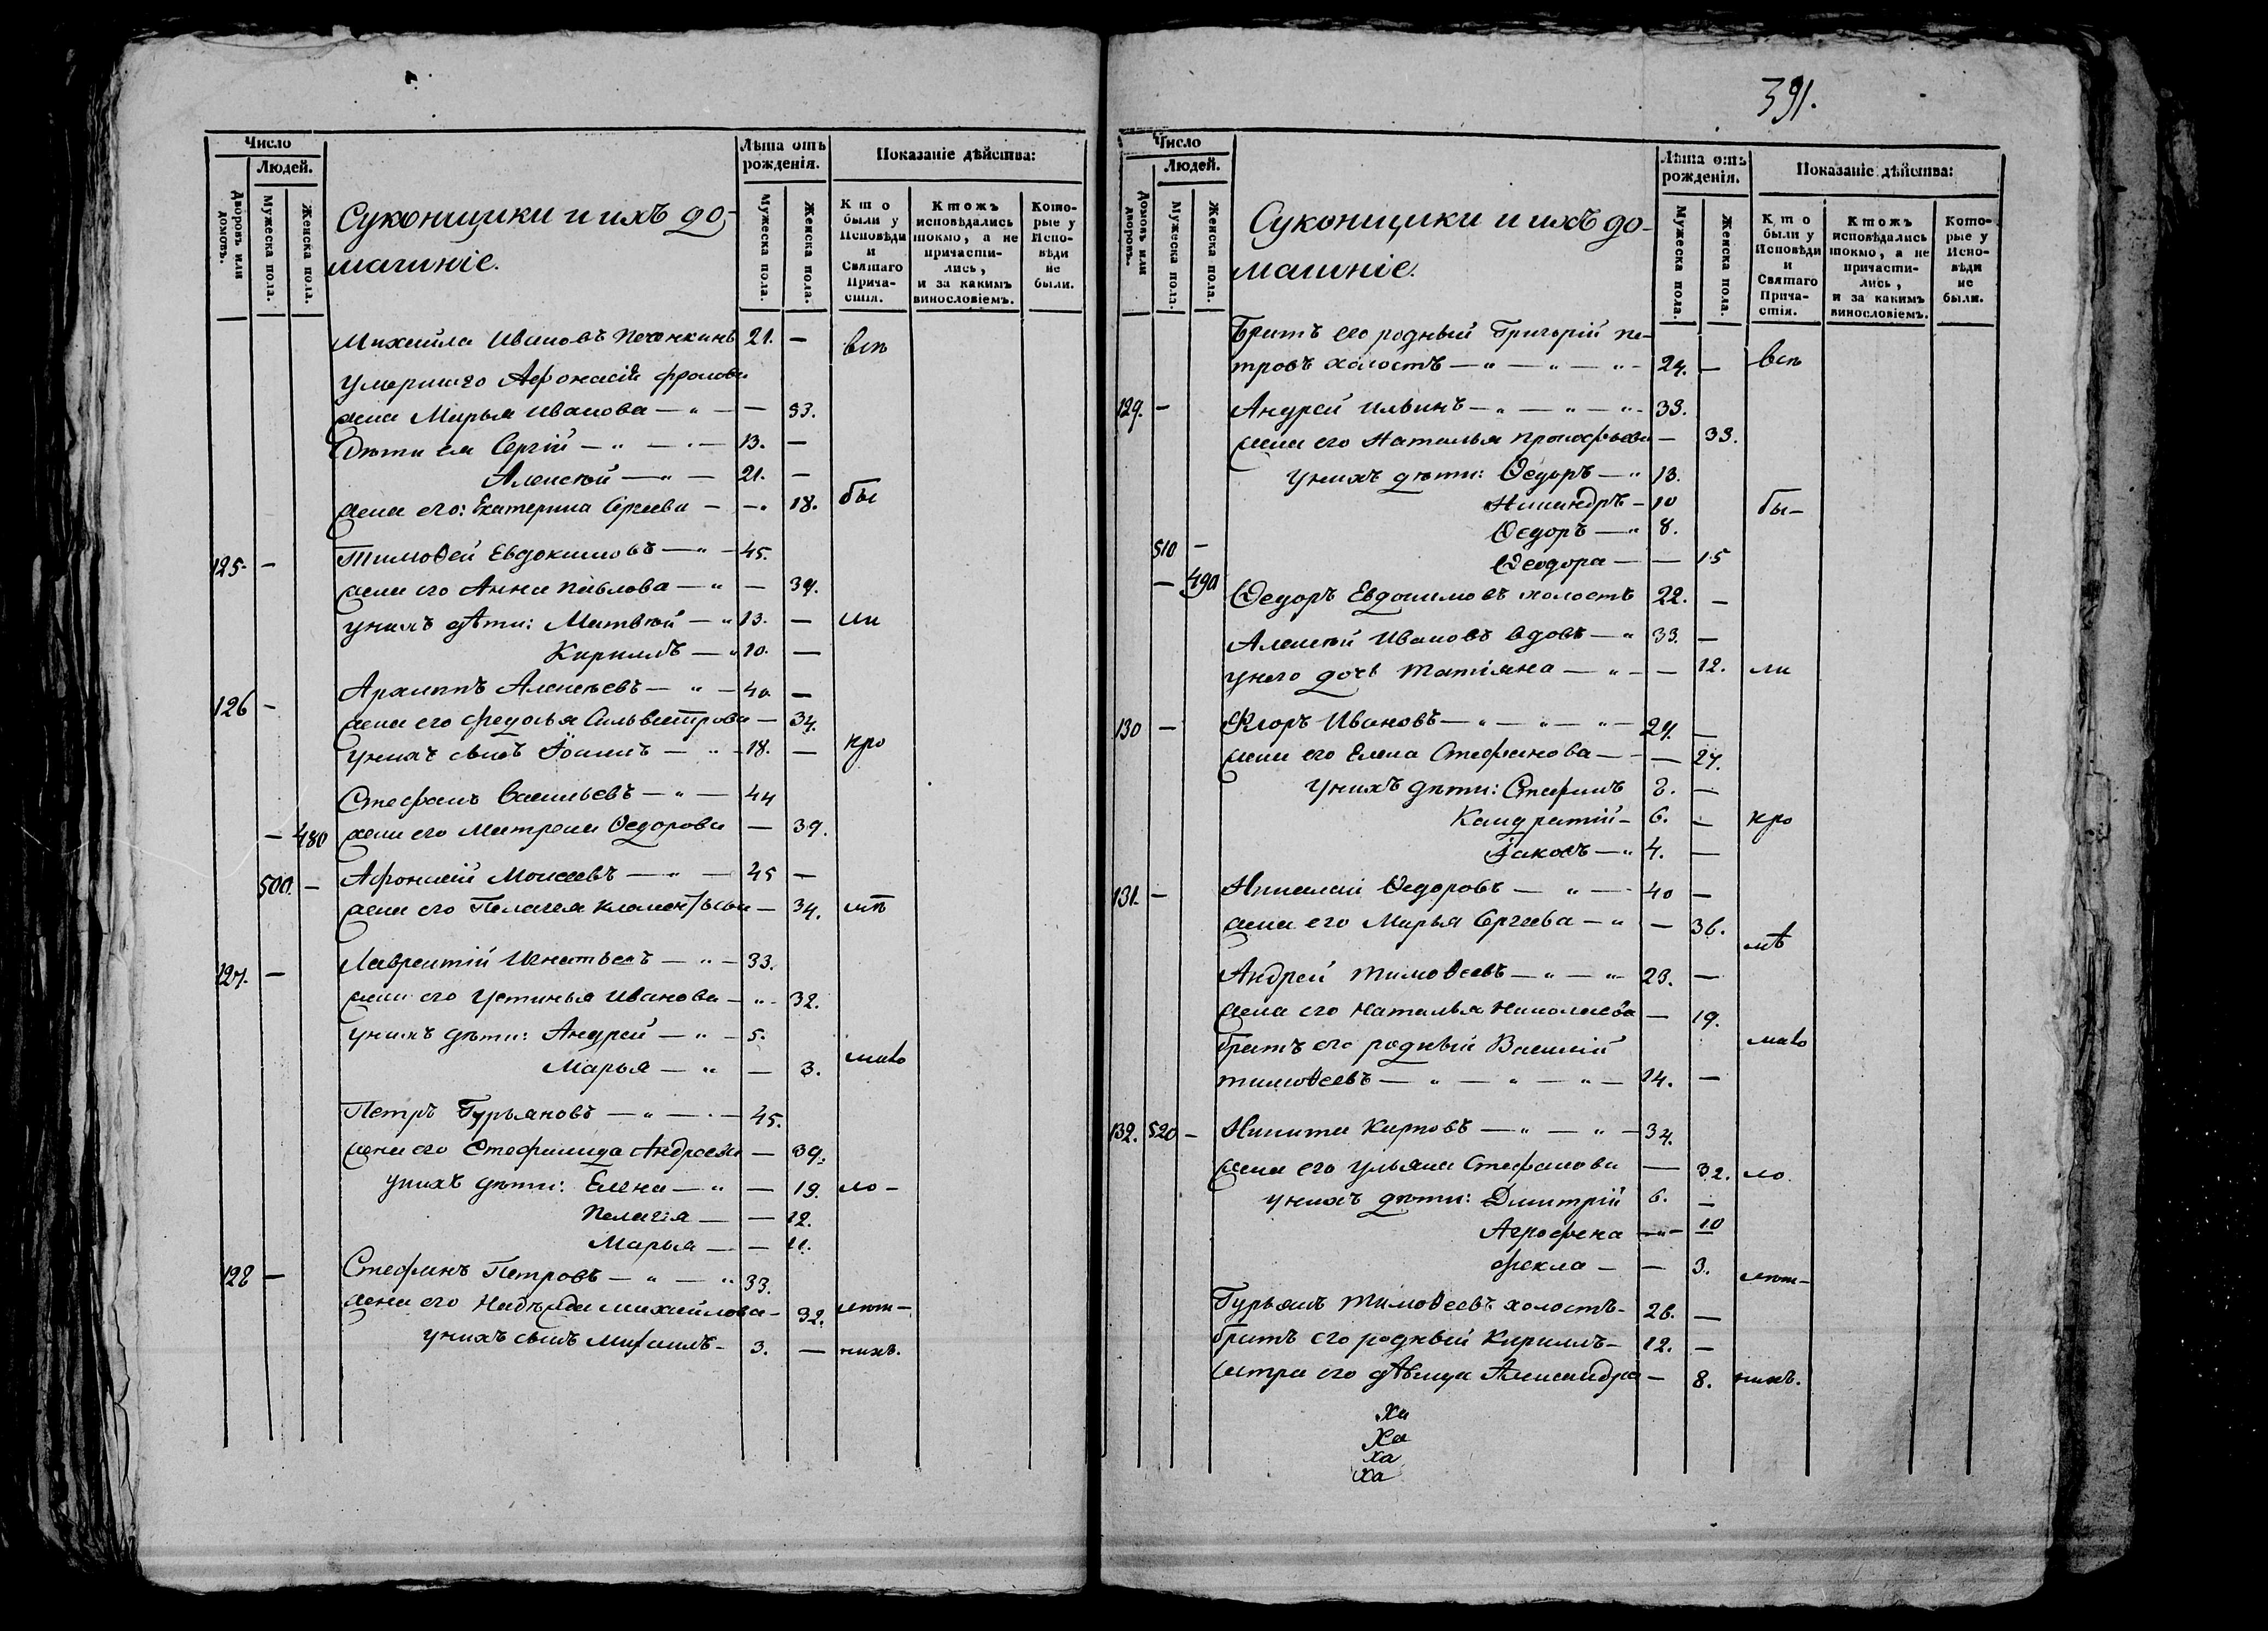 Число
Людей.
Дворовъ или домовъ.
Мужеска пола.
Женска пола.
Суконщики и ихъ до-
машніе.
Лѣта отъ
рожденія.
Мужеска пола.
Женска пола.
Показаніе дѣйства:
Кто
были у
Исповѣди
и
Святаго
Прича-
стія.
Ктожъ
исповѣдались
токмо, а не
причасти-
лись,
и за какимъ
винословіемъ.
Кото-
рые у
Испо-
вѣди
не
были.
Михайла Ивановъ 21. — всѣ
умершаго Афонасія Фролова
жена Марья Иванова — „ — — 33.
Дѣти ея Сергій — „ — „ — 13. —
Алексѣй — „ — 21. —
жена его: Екатерина Сергеева — — „ 18. бы
125. — Тимоѳей Евдокимовъ — „ — 45.
жена его Анна Павлова — „ — 39.
у нихъ дѣти: Матвѣй — „ 13. — ли
Кириллъ — „ 10. —
126 — Архиппъ Алексѣевъ — „ — 40 —
жена его Федосья Сильвестрова — 34.
у нихъ сынъ Іоаннъ — „ — 18. — кро
Стефанъ Васильевъ — „ — 44
— 480 жена его Матрена Ѳедорова — 39.
500. — Афонасій Моисеевъ — „ — 45 —
жена его Пелагея — 34. мѣ
127. — Лаврентій Игнатьевъ — „ — 33.
жена его Устинья Иванова — „ — 32.
у нихъ дѣти: Андрей — „ — 5.
Марья — „ — 3. мало
Петръ Гурьяновъ — „ — „ — 45.
жена его Стефанида Андреева — 39.
у нихъ дѣти: Елена — „ — 19. ло —
Пелагея — — 12.
Марья — — 11.
128 — Стефанъ Петровъ — „ — „ 33.
жена его Надежда Михайлова — 32. лѣт —
у нихъ сынъ Михаилъ — 3. — нихъ.
391.
Число
Людей.
Домовъ или дворовъ.
Мужеска пола.
Женска пола.
Суконщики и ихъ до-
машніе.
Лѣта отъ
рожденія.
Мужеска пола.
Женска пола.
Показаніе дѣйства:
Кто
были у
Исповѣди
и
Святаго
Прича-
стія.
Ктожъ
исповѣдались
токмо, а не
причасти-
лись,
и за какимъ
винословіемъ.
Кото-
рые у
Испо-
вѣди
не
были.
Братъ его родный Григорій Пе-
тровъ холостъ — „ — „ — „ — 24. — всѣ
129. — Андрей Ильинъ — „ — „ — „ — 33.
жена его Наталья Прокофьева — 33.
у нихъ дѣти: Ѳедоръ — „ 13.
Никандръ — 10 бы —
Ѳедоръ — „ 8.
510 — Ѳеодора — — 15
— 490 Ѳедоръ Евдокимовъ холостъ 22. —
Алексѣй Ивановъ вдовъ — „ 33. —
у него дочь Татіяна — „ — — 12. ли
130 — Егоръ Ивановъ — „ — „ — „ — 27. —
жена его Елена Стефанова — — 27.
у нихъ дѣти: Стефанъ 8. —
Кандратій — 6. — кро
Іаковъ — „ 4. —
131. — Николай Ѳедоровъ — „ — 40 —
жена его Марья Сергеева — „ — 36. мѣ
Андрей Тимоѳеевъ — „ — „ 23. —
жена его Наталья Николаева — 19.
братъ его родный Василій мало
Тимоѳеевъ — „ — „ — „ — 14. —
132. 520 — Никита Карповъ — „ — „ — 34.
жена его Ульяна Стефанова — 32. ло
у нихъ дѣти: Дмитрій 6. —
Агрофена — „ — 10
Фекла — — 3. лѣт —
Гурьянъ Тимоѳеевъ холостъ — 26. —
братъ его родный Кириллъ — 12. —
сестра его дѣвица Александра — 8. нихъ.
Ха
Ха
Ха
Ха